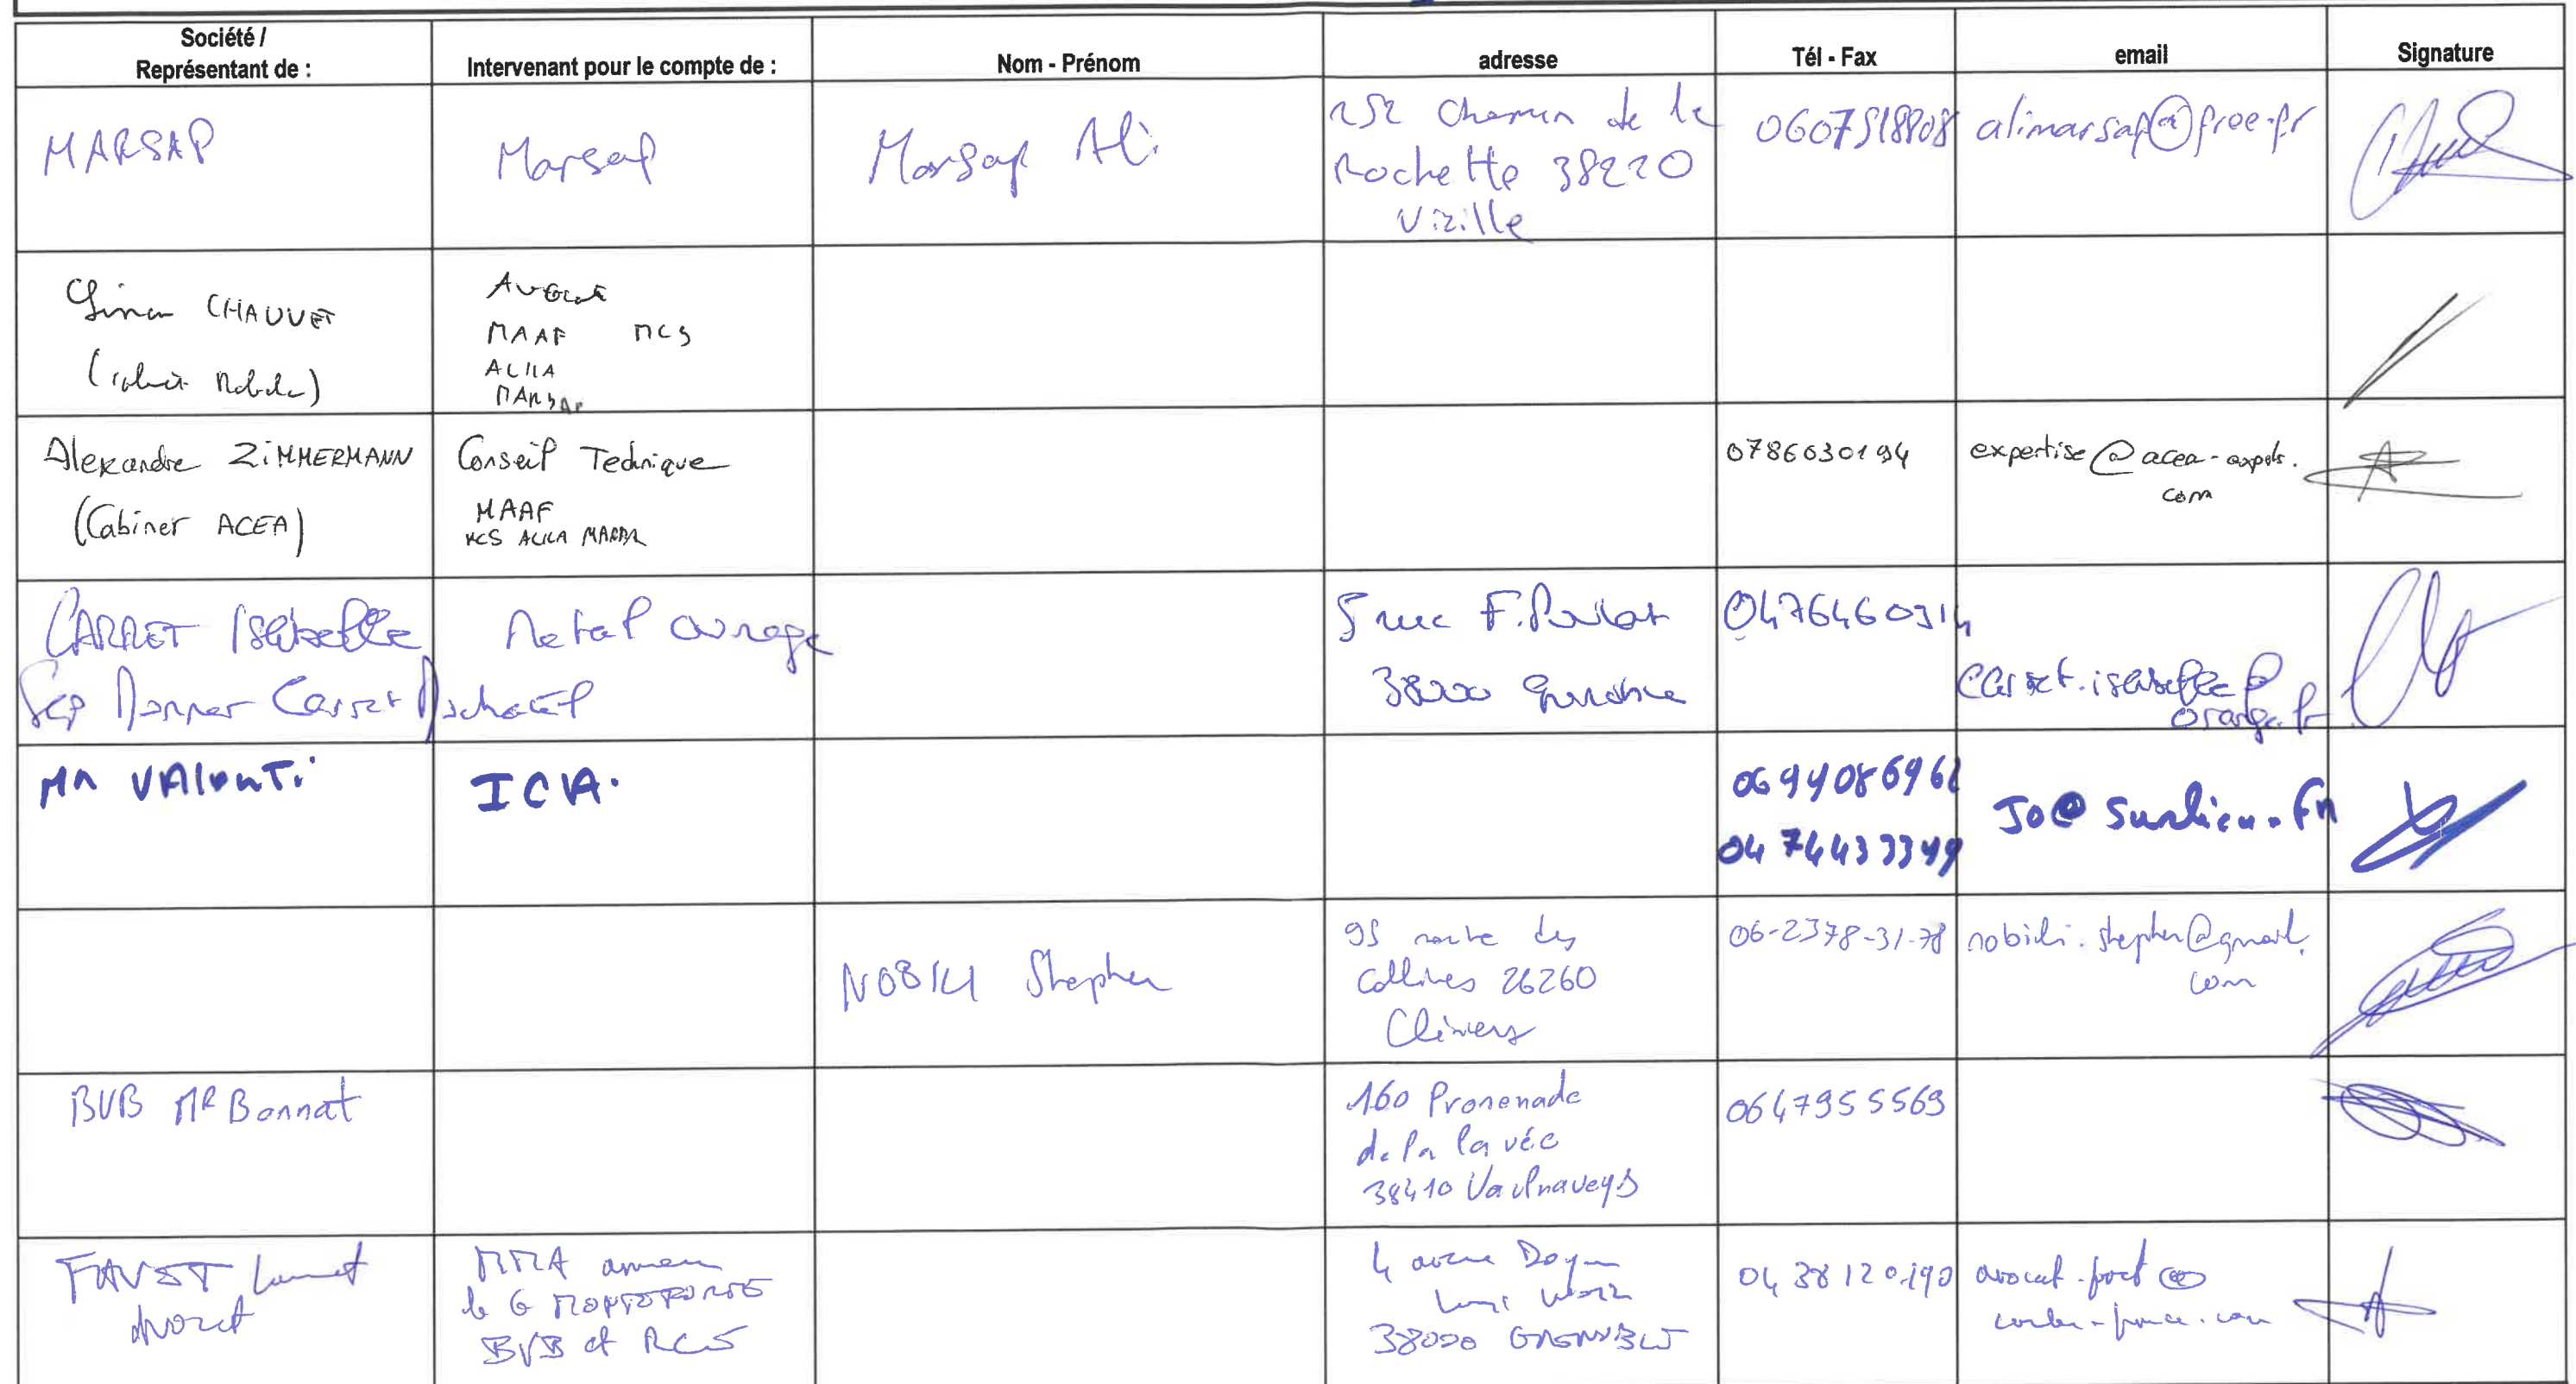 Société / Représentant de :
Intervenant pour le compte de :
Nom - Prénom
adresse
Tél - Fax
email
Signature
MARSAP
Marsap
Marsap Ali
252 Chemin de la
Rochette 38220
Vizille
0607518808
alimarsap@free.fr
CHAUVET
Avocat
MAAF MCS
ALILA
MARSAP
Alexandre ZIMMERMANN
(Cabinet ACEA)
Conseil Technique
MAAF
MCS ALILA
0786630194
expertise@acea-experts.
com
CARRET Isabelle
Scp Carret
Metal ouvrage
5 rue F.
38000 Grenoble
0476460314
carret.isabelle@
orange.fr
Mr VALENTI
ICA.
0474433349
Jo@surlieu.fr
NOBILI Stephen
95 route des
Collines 26260
06-2378-31-78
nobili.stephen@gmail.
com
BVB Mr Bonnat
160 Promenade
de la lavée
38410 Vaulnaveys
0647955569
FAVET
avocat
MMA
BVB et RCS
4 avenue Doyen
Louis Weil
38000 GRENOBLE
0438120190